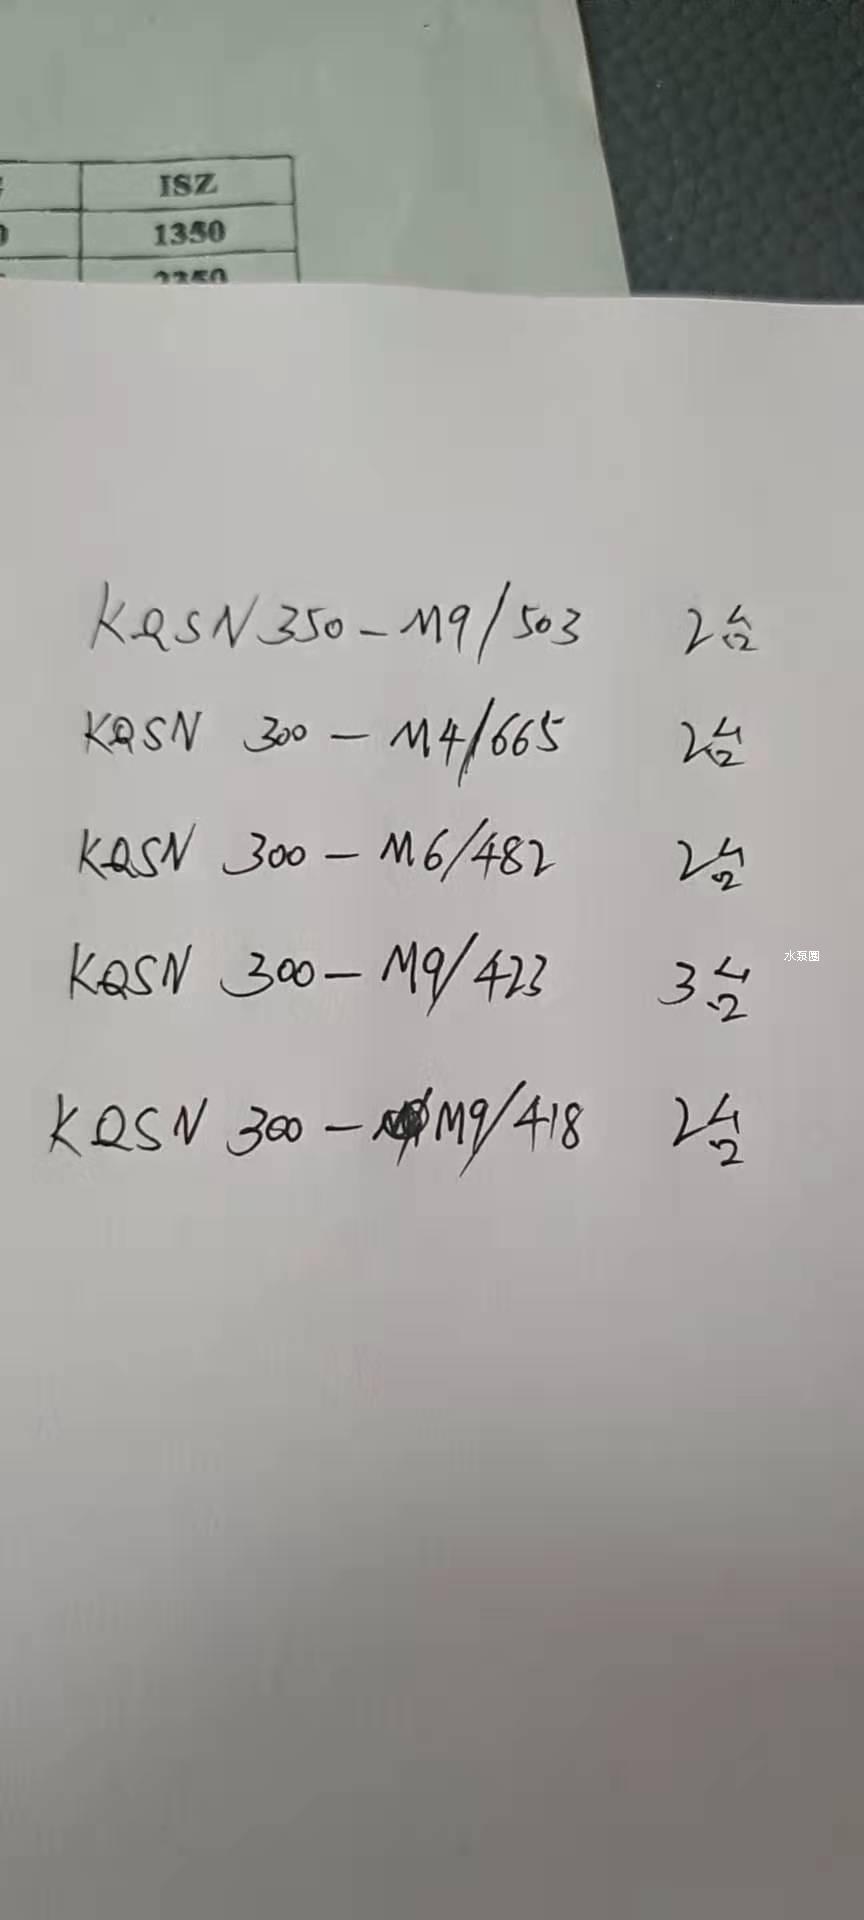 ISZ
1350
2350
KQSN 350-M9/503 2台
KQSN 300-M4/665 2台
KQSN 300-M6/482 2台
KQSN 300-M9/423 3台
水泵圈
KQSN 300-M9/418 2台